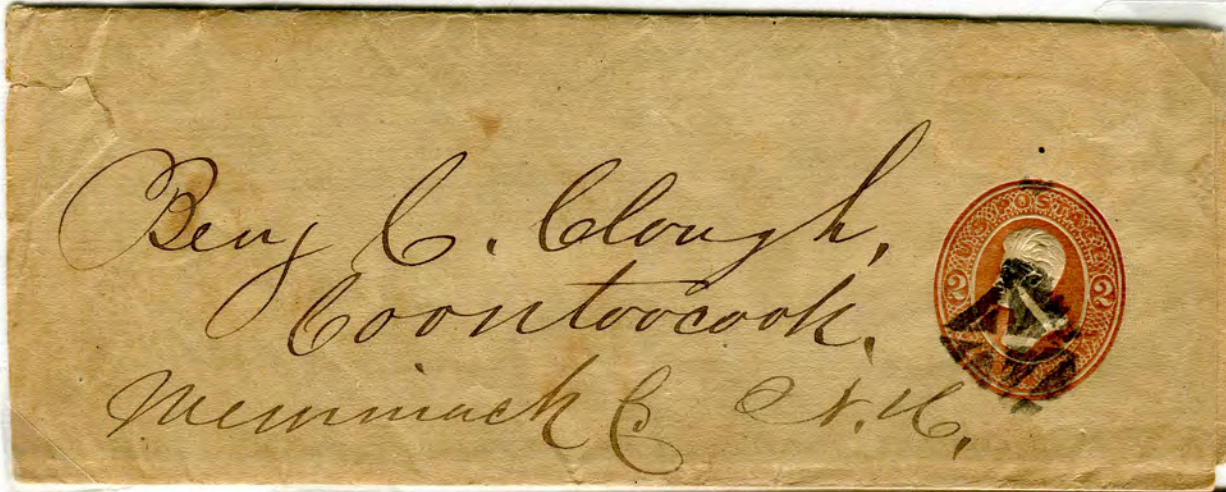 Benj C. Clough,
Coontoocook.
Merrimack Co N.H.
U.S. POSTAGE
2 2